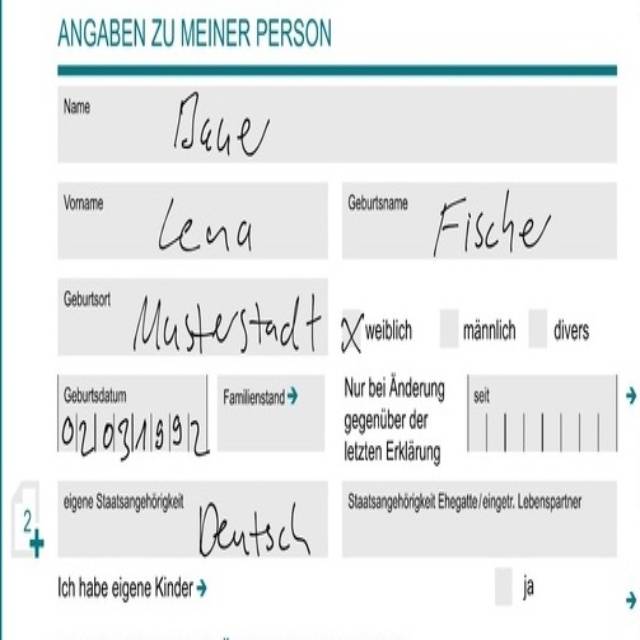 ANGABEN ZU MEINER PERSON
Name
Bauer
Vorname
Lena
Geburtsname
Fischer
Geburtsort
Musterstadt
X weiblich
männlich
divers
Geburtsdatum
02031992
Familienstand →
Nur bei Änderung
gegenüber der
letzten Erklärung
seit
eigene Staatsangehörigkeit
Deutsch
Staatsangehörigkeit Ehegatte/eingetr. Lebenspartner
2+
Ich habe eigene Kinder →
ja